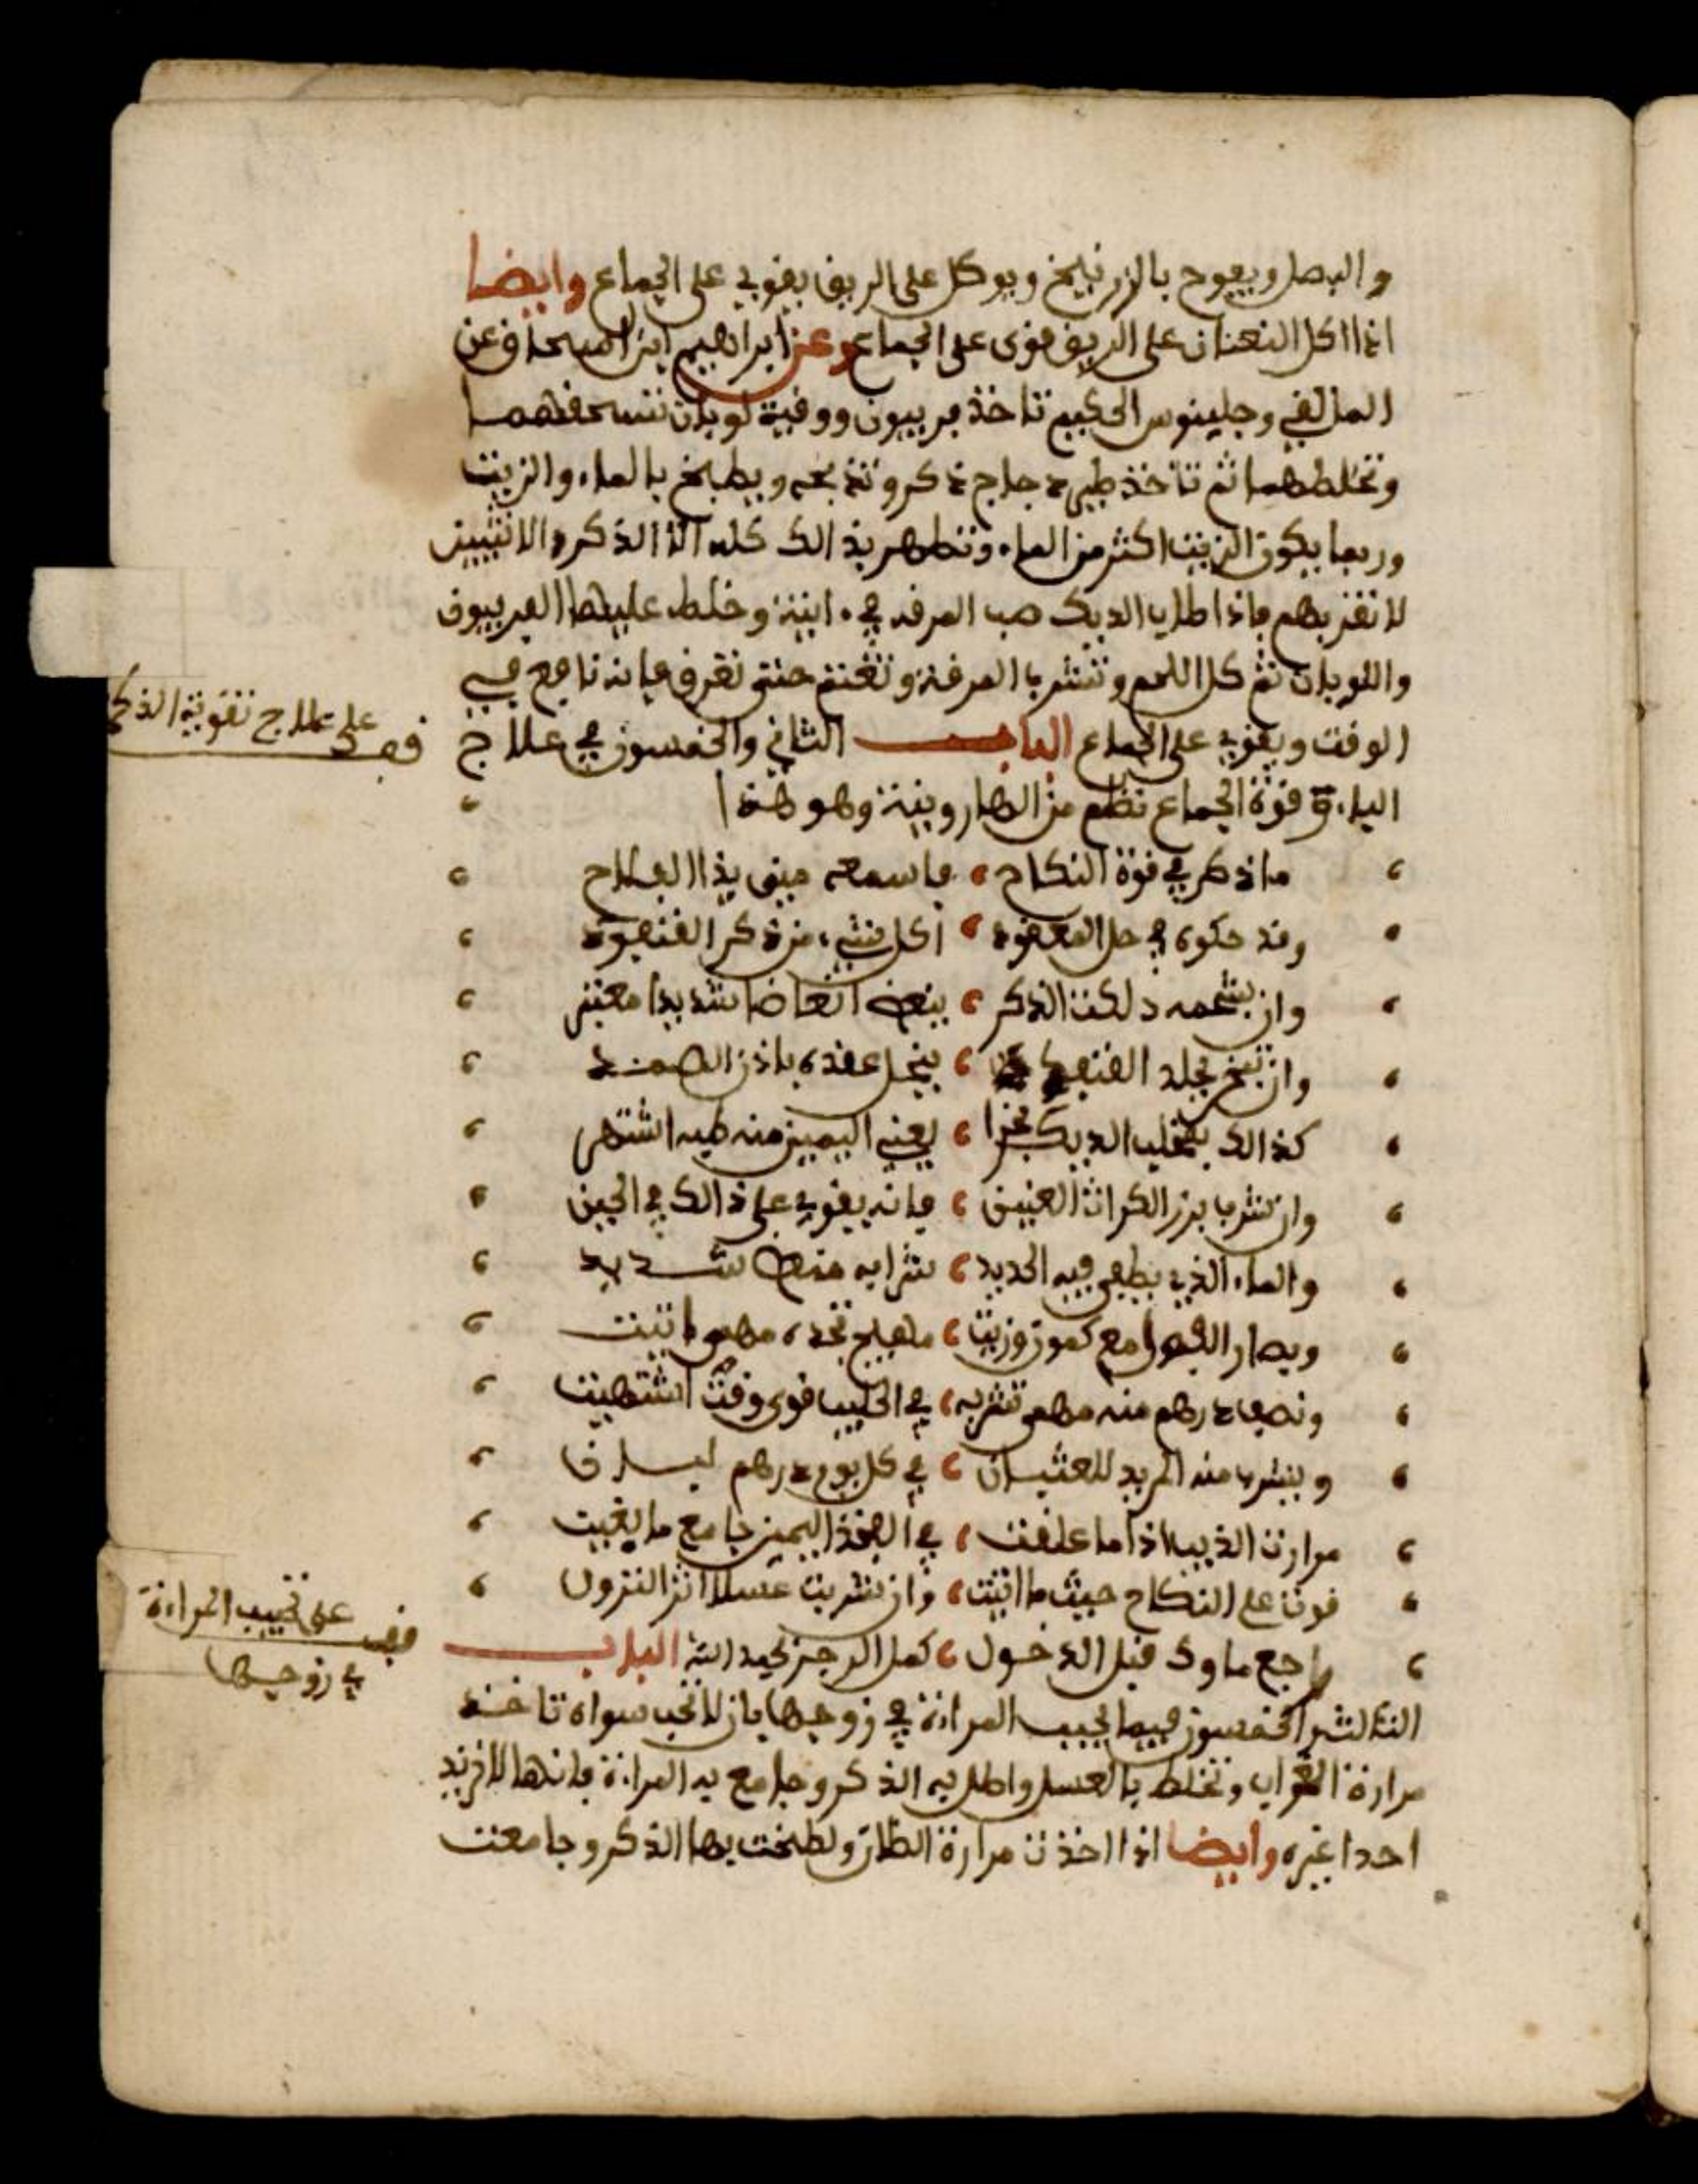 والبصل ويفوح بالزرنيخ ويوكل على الريق يقوي على الجماع وايضا
اذا اكل النعناع على الريق قوى على الجماع وعن ابراهيم ابن اسحاق عن
وجلينوس الحكيم تاخذ فربيون ووقية لوبان تسحقهما
وتخلطهما ثم تاخذ طير دجاج ذكر وتذبحه ويطبخ بالماء والزيت
وربما يكون الزيت اكثر من الماء وتطهر بذالك كله الا الذكر والانثيين
لا تقربهم فاذا طاب الديك صب المرقه في ءانية وخلط عليها الفربيون
واللوبان ثم كل اللحم وتشرب المرقة وتغتم حتى تعرق فانه نافع في
الوقت ويقوي على الجماع البـاب الثاني والخمسون في علاج
الباءة وقوة الجماع نظم من الهارونية وهو هذا
ماذكر في قوة النكاح فاسمعه مني يذا الفلاح
وقد حكوه في حل المعقود اكل شيء من ذكر القنفود
وان بشحمه دلكت الذكر ينعض انعاضا شديدا معتبر
وان تبخر بجلد القنفد ينحل عقده باذن الصمد
كذالك بمخلب الديك بخرا يعني اليمين منه طيه اشتهر
وان شرب بزر الكراث العنين فانه يقوي على ذالك في الحين
والماء الذي يطفى فيه الحديد شرابه منعض شديد
ويصار الفجل مع كمون وزيت مهيج تجده مهمى اتيت
ونصف درهم منه مهمى تشربه في الحليب قوى وقت اشتهيت
ويشرب منه المريد للغشيان في كل يوم درهم ليسان
مرارت الذيب اذا ما علقت في الفخذ اليمين جامع ما بغيت
قوت على النكاح حيث ما اتيت وان شربت عسلا اثر النزول
راجع ماوك قبل الدخول كمل الرجز بحمد الله البـاب
الثالث والخمسون فيما يحبب المراة في زوجها بان لا تحب سواه تاخذ
مرارة الغراب وتخلط بالعسل واطل به الذكر وجامع به المراة فانها لا تريد
احدا غيره وايضا اذا اخذت مرارة ولطخت بها الذكر وجامعت
قف على علاج تقوية الذكر
قف على تحبيب المراءة
في زوجها